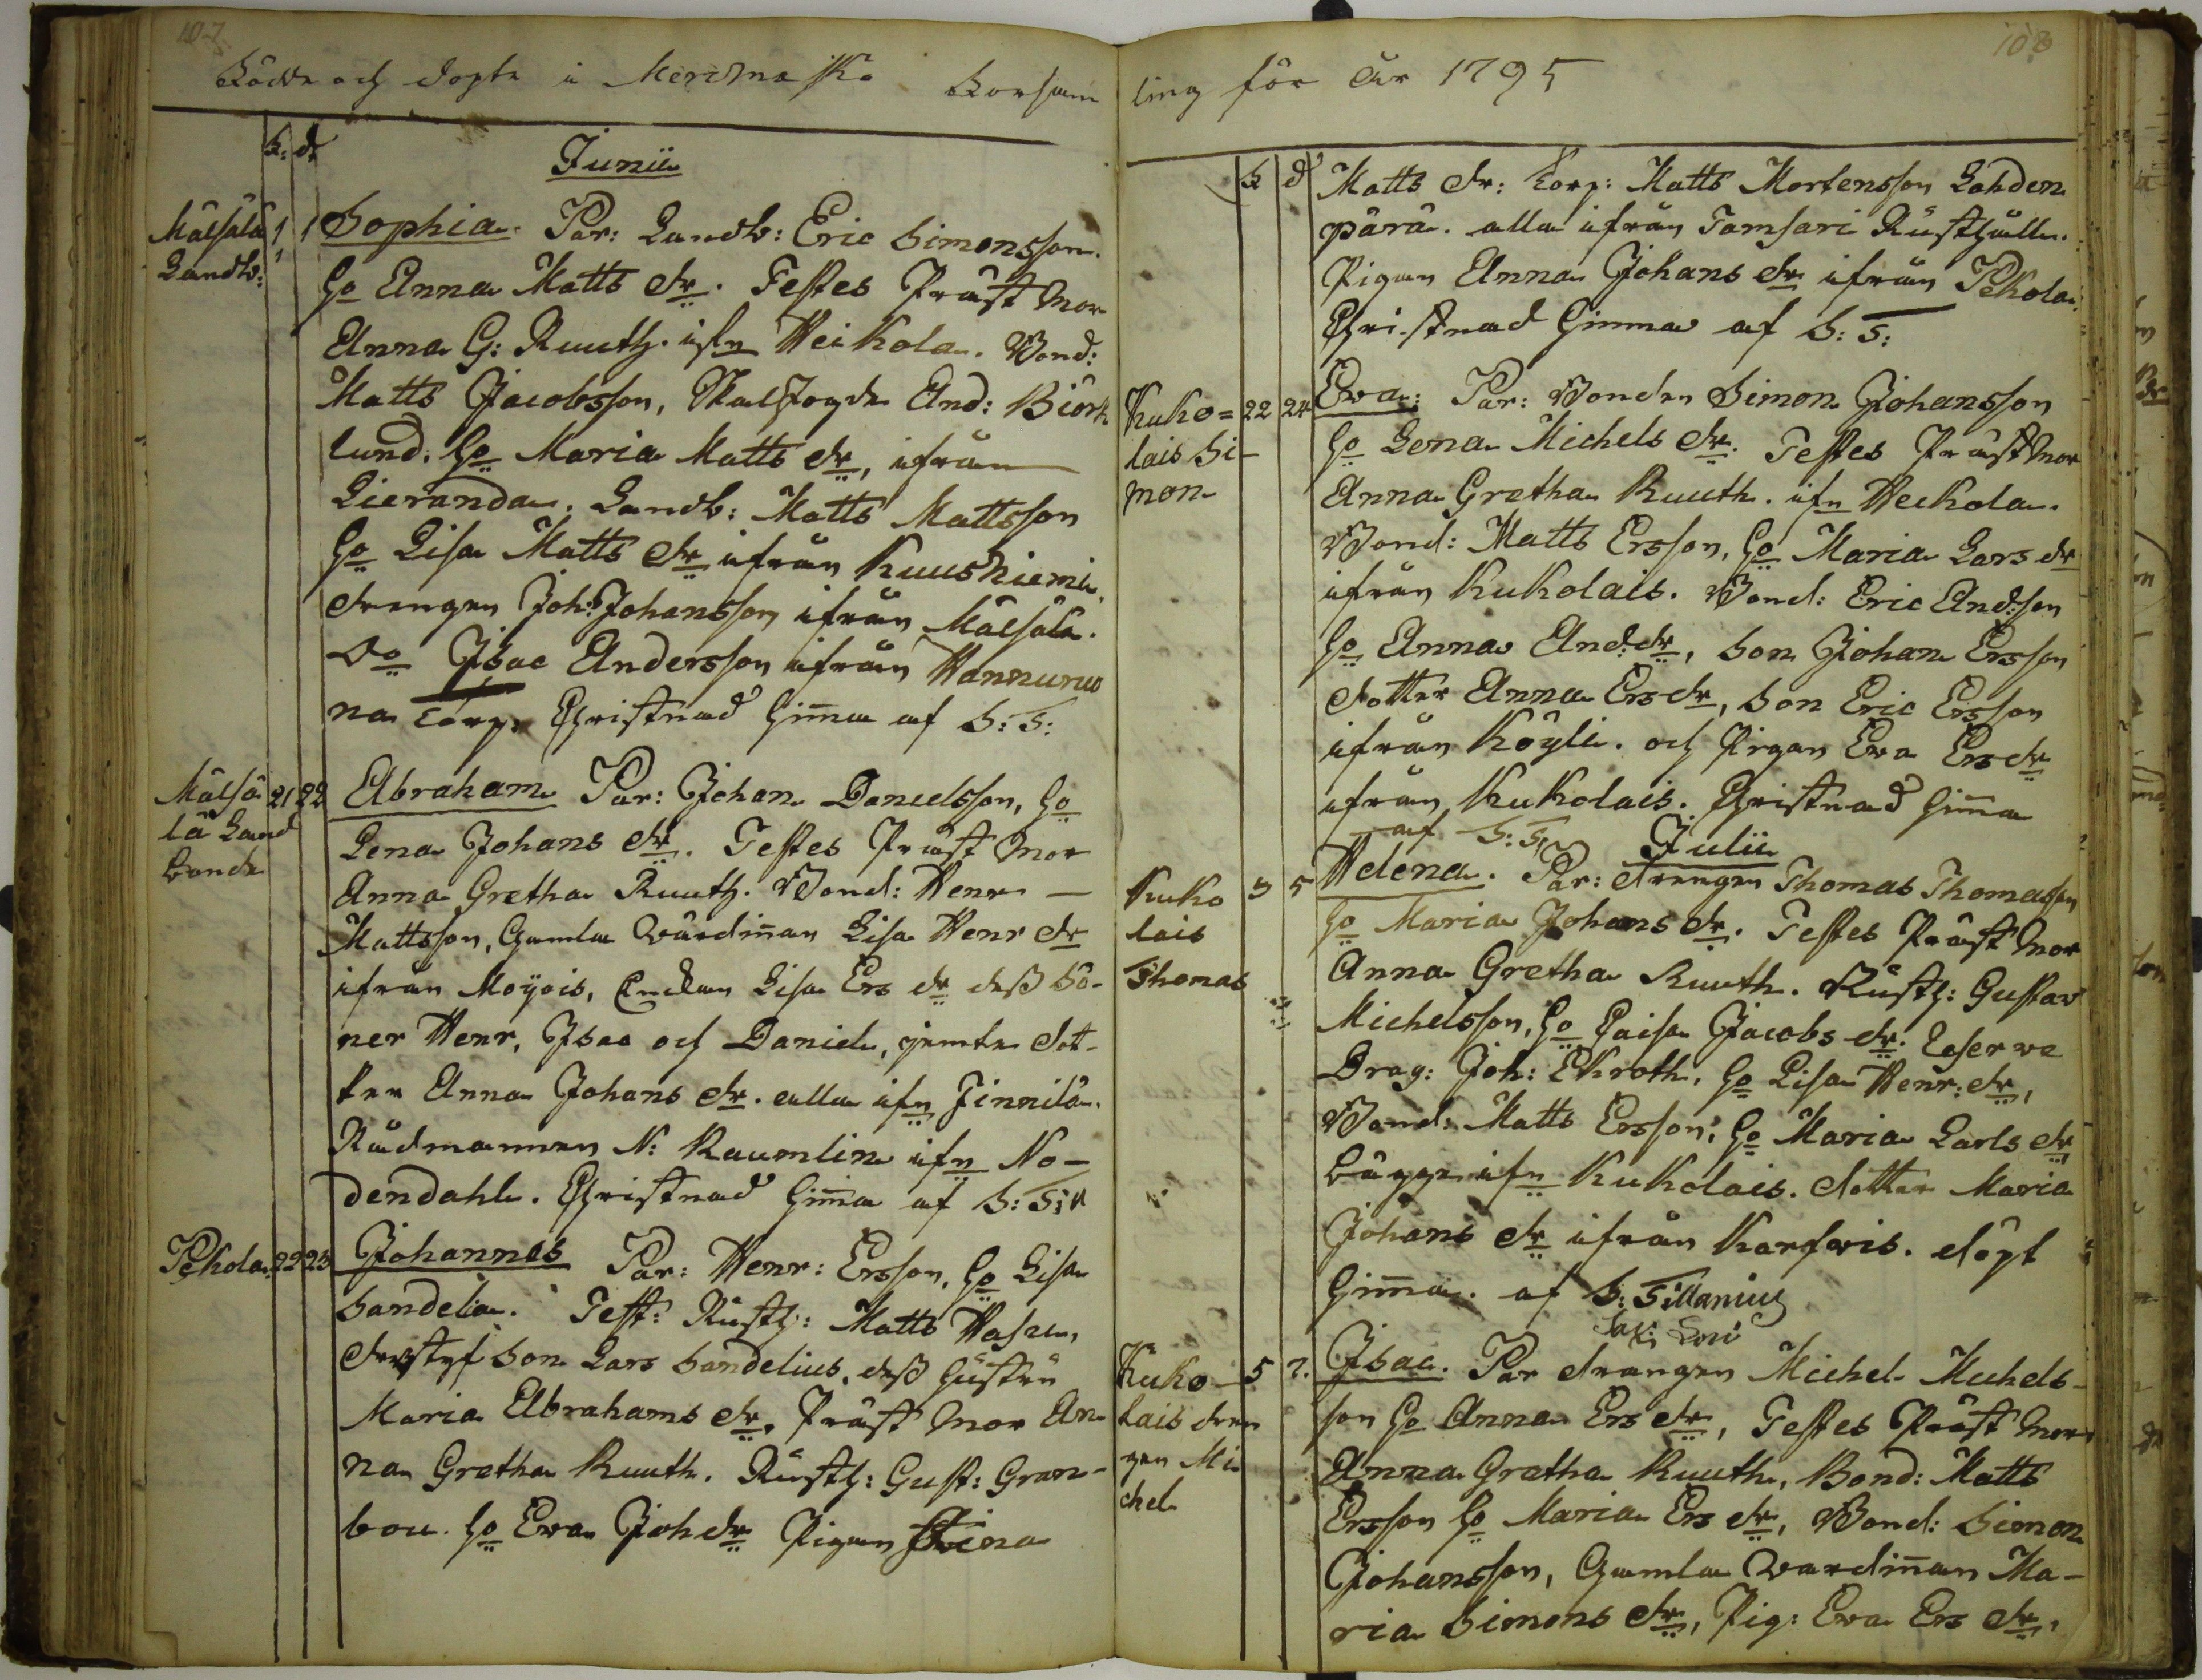 107
Födde och döpte i Merimasku Forsam
F. d.
Junii
Mälsälä 1 1 Sophia. Par: Landb: Eric Simonsson.
Landb: H:o Anna Matts dr. Testes Präst Mor
Anna G: Ruuth. ifn Heikola. Bond:
Matts Jacobsson, And: Biörk
lund. H:o Maria Matts dr, ifrån
Lieranda. Landb: Matts Mattsson
H:o Lisa Matts dr ifrån Kuusniemi.
Drengen Joh: Johansson ifrån Mälsälä.
D:o Isaac Andersson ifrån Hannuruo
na Torp. Christnad hemma af S: T:
Mälsä 21 22 Abraham. Par: Johan Danielsson, H:o
lä Land Lena Johans dr. Testes Präst Mor
bonde Anna Gretha Ruuth. Bond: Henr
Mattsson, Gamla Värdinnan Lisa Henr dr
ifrån Moÿois, Enckan Lisa Ers dr dess Sö-
ner Henr, Isac och Daniel, jemte dot-
ter Anna Johans dr. alla ifn Finnilä.
Rådmannen N: Raumlin ifn Nå-
dendahl. Christnad hemma af S: Till
Pekola 22 23 Johannes Par: Henr: Ersson, H:o Lisa
Sandelia. Test: Rusth: Matts
Son Lars Sandelius, dess hustru
Maria Abrahams dr, Präst Mor An-
na Gretha Ruuth. Rusth: Gust: Gran-
bou. H:o Eva Joh dr Pigan Stina
108
ling för år 1795
F d
Matts dr: Torp: Matts Mortensson Lahden
pärä. alla ifrån Tamsari Rusthåll.
Pigan Anna Johans dr ifrån Pekola.
Christnad hemma af S: T:
Kuko= 22 24 Eva: Par: Bonden Simon Johansson
lais Si- H:o Lena Michels dr. Testes Präst Mor
mon Anna Gretha Ruuth. ifn Heikola.
Bond: Matts Ersson, H:o Maria Lars dr
ifrån Kukolais. Bond: Eric And:son
H:o Anna And:dr, Son Johan Ersson
dotter Anna Ers dr, Son Eric Ersson
ifrån Köyli. och Pigan Eva Ers dr
ifrån Kukolais. Christnad hemma
af S: T:
Julii
Kuko 3 5 Helena. Par: Drengen Thomas Thomasson
lais H:o Maria Johans dr. Testes Präst Mor
Thomas Anna Gretha Ruuth. Rusth: Gustav
Michelsson, H:o Caisa Jacobs dr. Reserve
Drag: Joh: Ekroth, H:o Lisa Henr: dr,
Bond: Matts Ersson, H:o Maria Carls dr
bägge ifn Kukolais. dotter Maria
Johans dr ifrån Karfvis. döpt
hemma. af S: Tillanius
Sax: Loci
Kuko- 5 7. Isaac. Par Drengen Michel Michels-
lais Dren son H:o Anna Ers dr, Testes Präst Mor
gen Mi Anna Gretha Ruuth, Bond: Matts
chel Ersson H:o Maria Ers dr, Bond: Simon
Johansson, Gamla Värdinnan Ma-
ria Simons dr, Pig: Eva Ers dr,